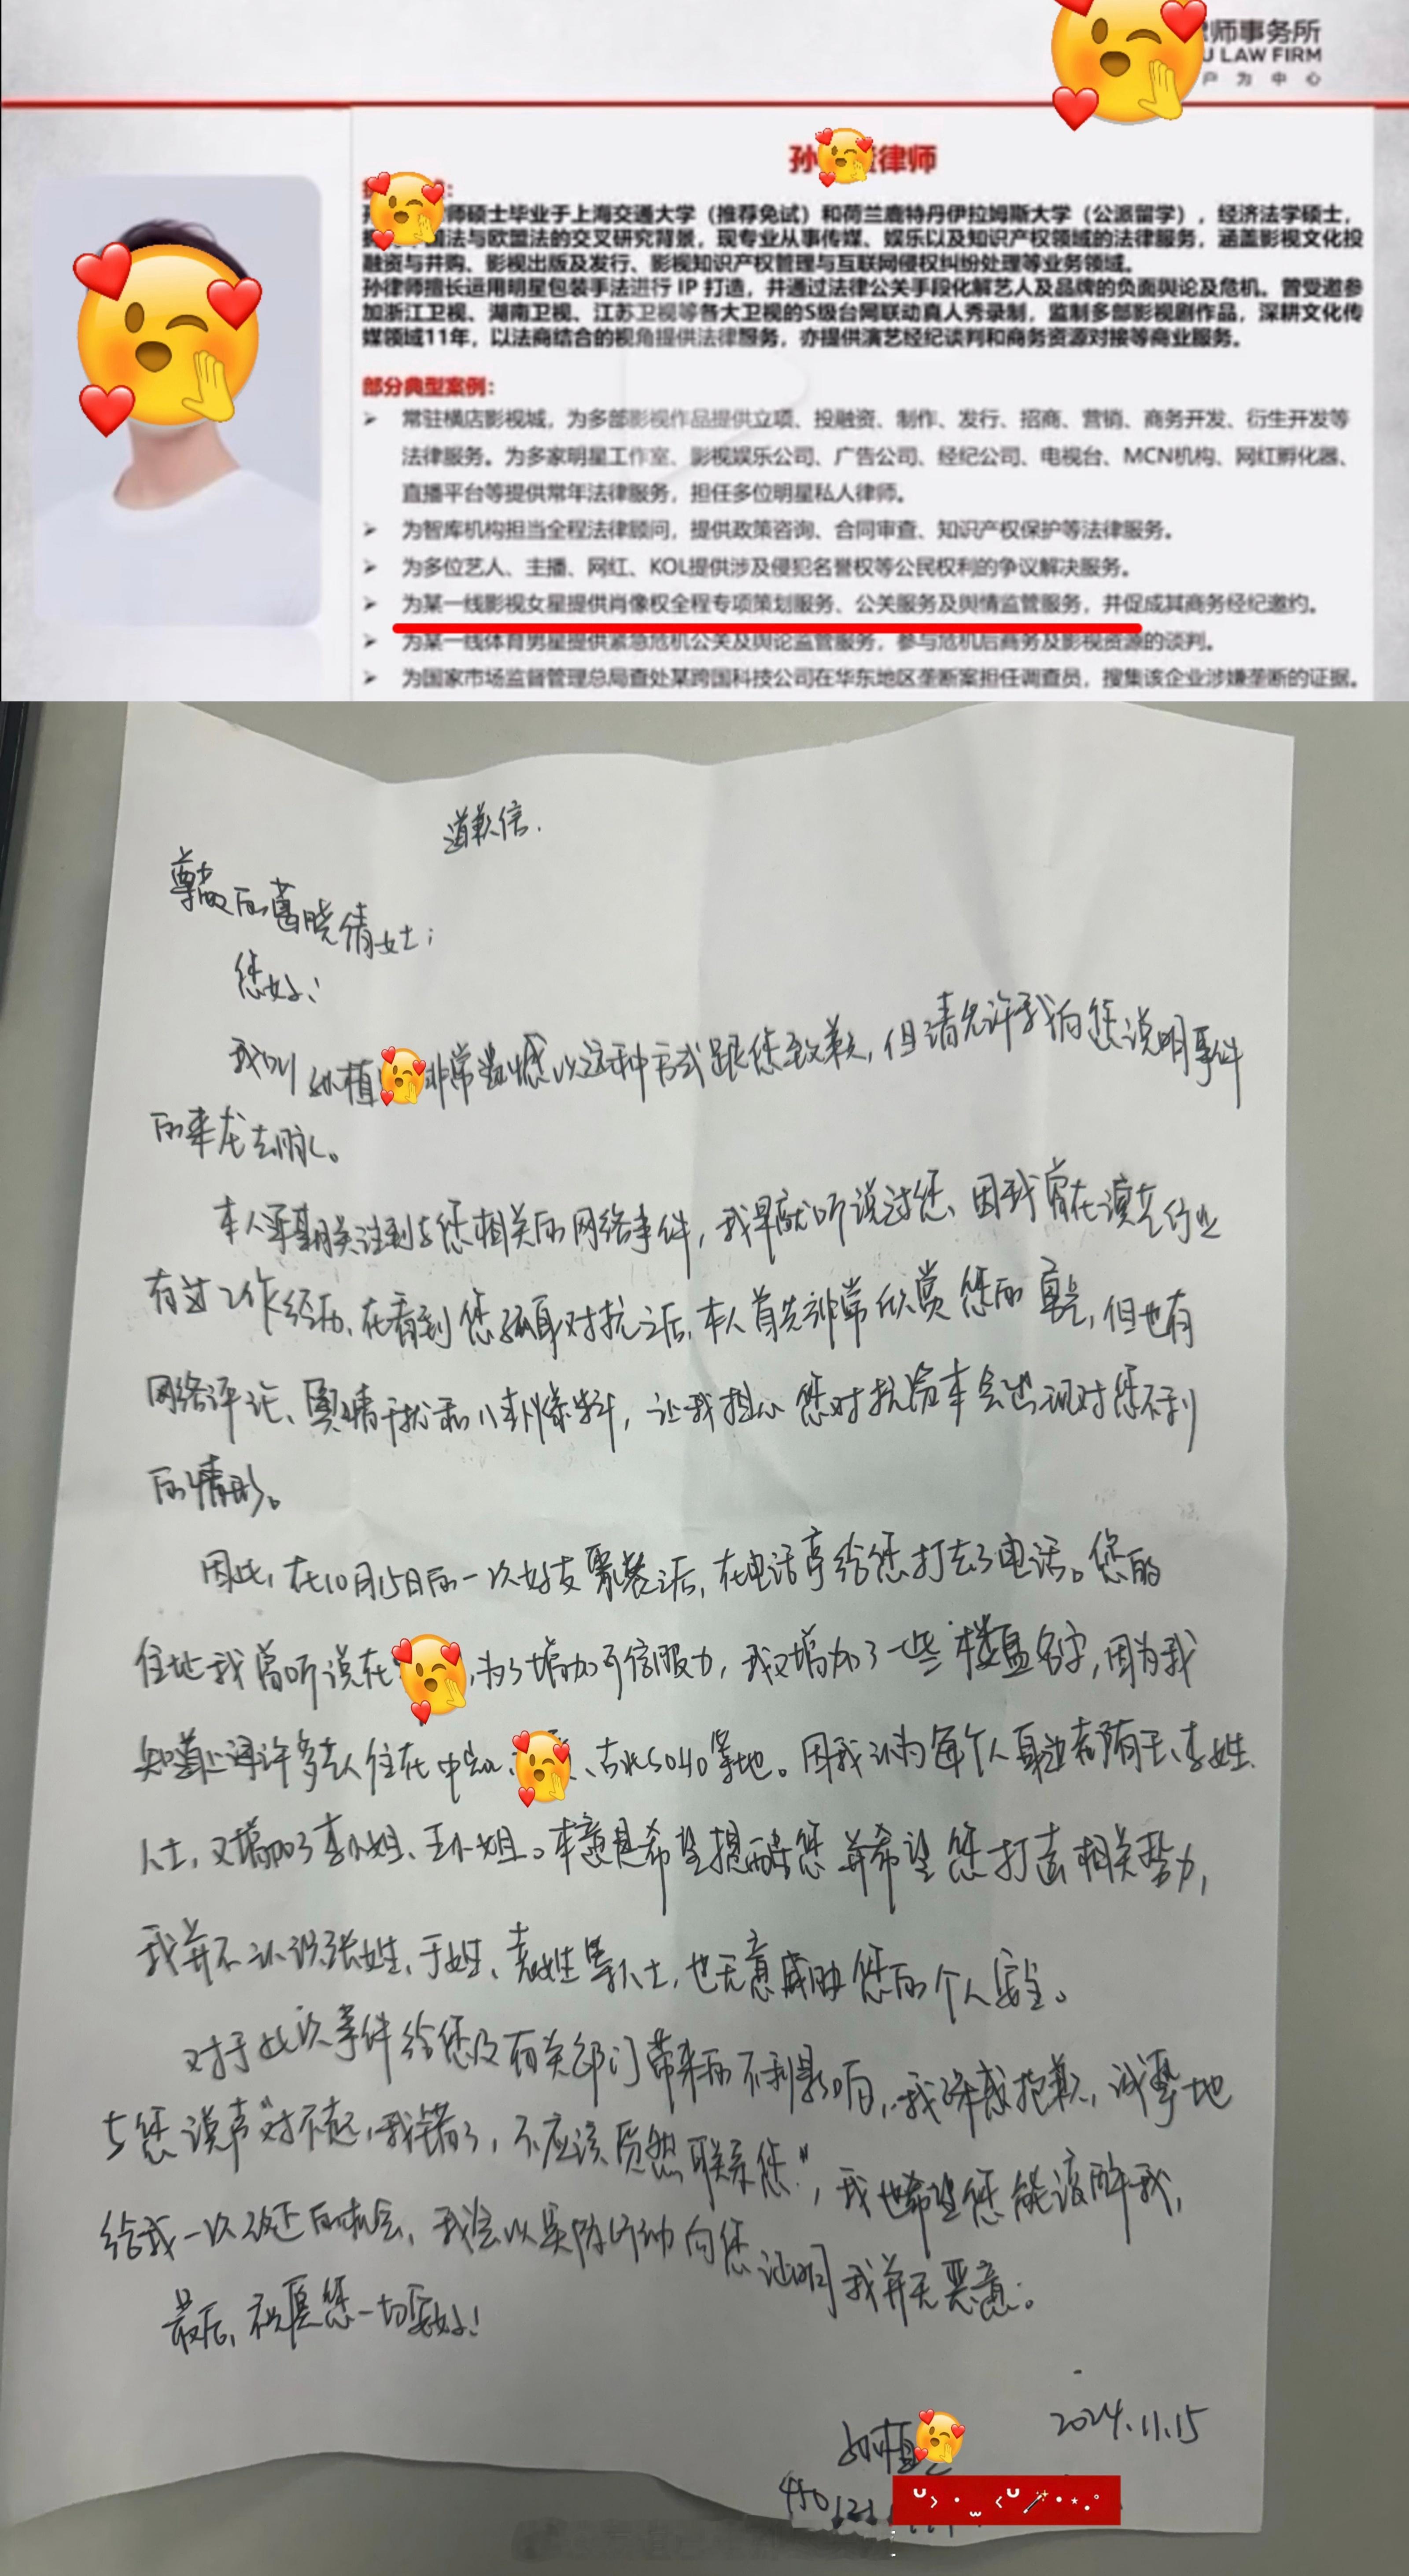 律师事务所
U LAW FIRM
户 为 中 心
孙 律师
师硕士毕业于上海交通大学（推荐免试）和荷兰鹿特丹伊拉姆斯大学（公派留学），经济法学硕士，
国法与欧盟法的交叉研究背景，现专业从事传媒、娱乐以及知识产权领域的法律服务，涵盖影视文化投
融资与并购、影视出版及发行、影视知识产权管理与互联网侵权纠纷处理等业务领域。
孙律师擅长运用明星包装手法进行 IP 打造，并通过法律公关手段化解艺人及品牌的负面舆论及危机。曾受邀参
加浙江卫视、湖南卫视、江苏卫视等各大卫视的S级台网联动真人秀录制，监制多部影视剧作品，深耕文化传
媒领域11年，以法商结合的视角提供法律服务，亦提供演艺经纪谈判和商务资源对接等商业服务。
部分典型案例：
常驻横店影视城，为多部影视作品提供立项、投融资、制作、发行、招商、营销、商务开发、衍生开发等
法律服务。为多家明星工作室、影视娱乐公司、广告公司、经纪公司、电视台、MCN机构、网红孵化器、
直播平台等提供常年法律服务，担任多位明星私人律师。
为智库机构担当全程法律顾问，提供政策咨询、合同审查、知识产权保护等法律服务。
为多位艺人、主播、网红、KOL提供涉及侵犯名誉权等公民权利的争议解决服务。
为某一线影视女星提供肖像权全程专项策划服务、公关服务及舆情监管服务，并促成其商务经纪邀约。
为某一线体育男星提供紧急危机公关及舆论监管服务，参与危机后商务及影视资源的谈判。
为国家市场监督管理总局查处某跨国科技公司在华东地区垄断案担任调查员，搜集该企业涉嫌垄断的证据。
道歉信.
尊敬的葛晓倩女士：
您好！
我叫孙植 非常遗憾以这种方式跟您致歉，但请允许我向您说明事件
的来龙去脉。
本人早期关注到与您相关的网络事件，我早就听说过您、因我曾在演艺行业
有过工作经历、在看到您孤身对抗之后，本人首先非常欣赏您的勇气，但也有
网络评论、舆情干扰和八卦爆料，让我担心您对抗资本会出现对您不利
的情形。
因此，在10月15日的一次好友聚餐之后，在电话亭给您打去了电话。您的
住址我曾听说在 ，为了增加可信服力，我又增加了一些楼盘名字，因为我
知道上海许多艺人住在中 、古北SOHO等地。因我认为每个人身边都有王、李姓
人士，又增加了李小姐、王小姐。本意是希望提醒您并希望您打击相关势力，
我并不认识张姓、于姓、袁姓等人士，也无意威胁您的个人安全。
对于此次事件给您及有关部门带来的不利影响，我深感抱歉，诚挚地
与您说声“对不起，我错了，不应该贸然联系您”，我也希望您能谅解我，
给我一次改正的机会，我会以实际行动向您证明我并无恶意。
最后，祝愿您一切安好！
孙植
2024.11.15